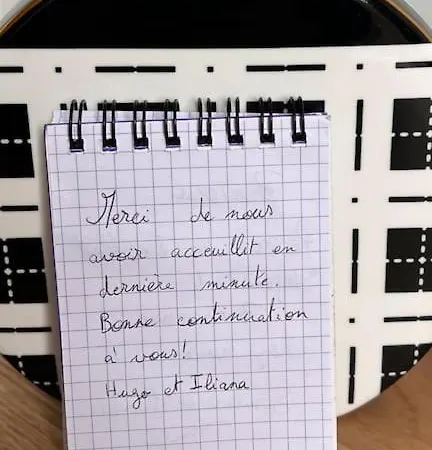 Merci de nous
avoir acceuillit en
dernière minute.
Bonne continuation
à vous!
Hugo et Iliana